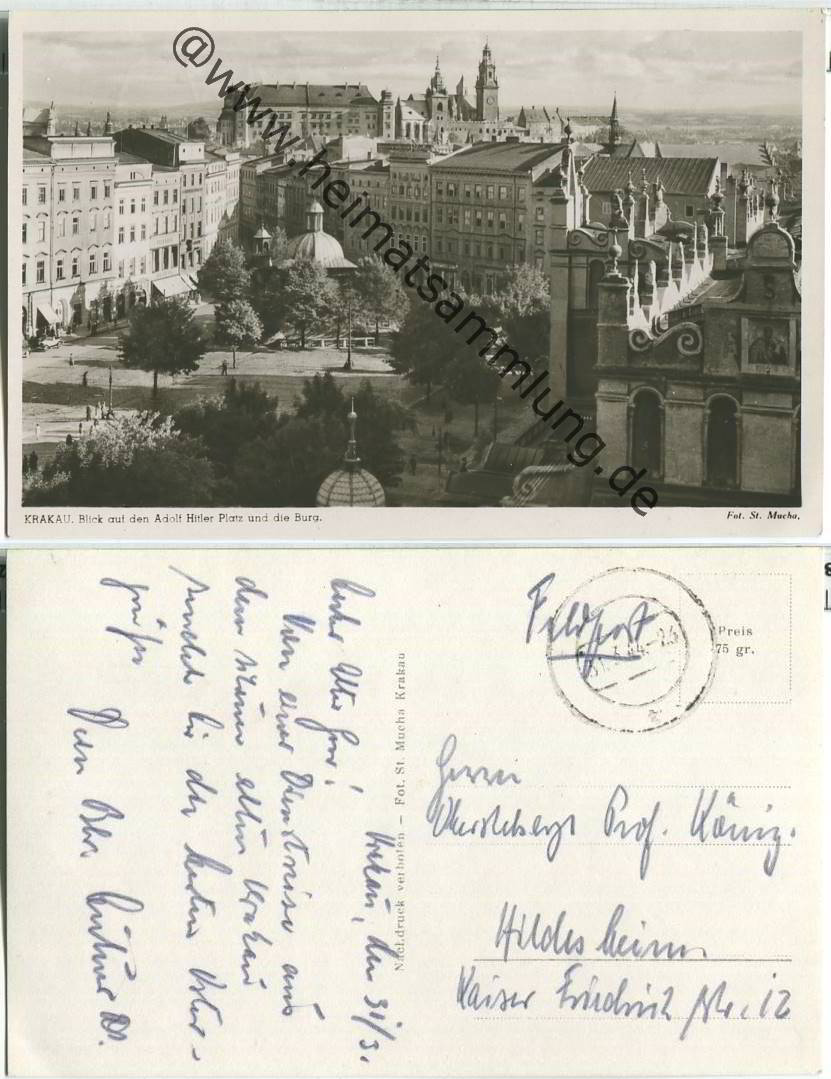 @www.heimatsammlung.de
KRAKAU. Blick auf den Adolf Hitler Platz und die Burg.
Fot. St. Mucha.
Feldpost
Preis
75 gr.
Krakau, den 31/3.
Lieber
Von einer Dienstreise aus
dem schönen alten Krakau
sendet Dir die besten Oster-
grüße
Dein
Nachdruck verboten – Fot. St. Mucha Krakau
Herrn
Prof. König.
Hildesheim
Kaiser Friedrich Str. 12